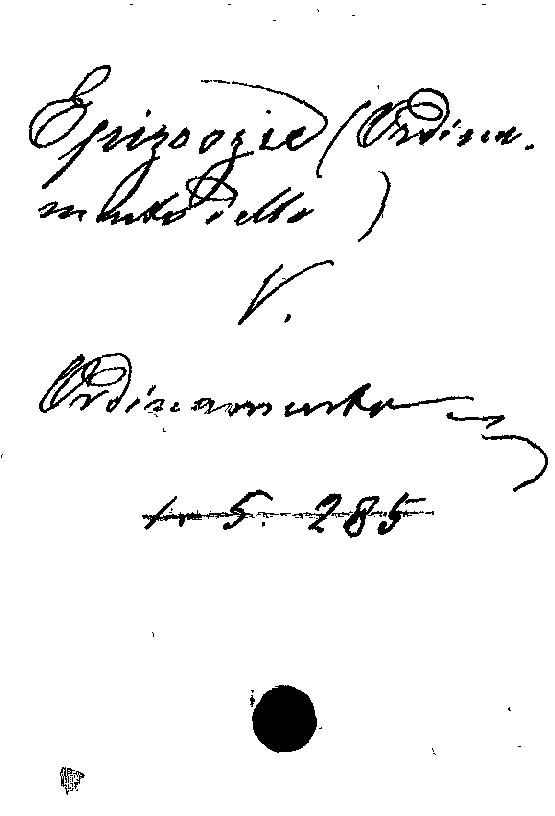 Epizoozie (Ordina.
mento delle)
V.
Ordinamento
5. 285